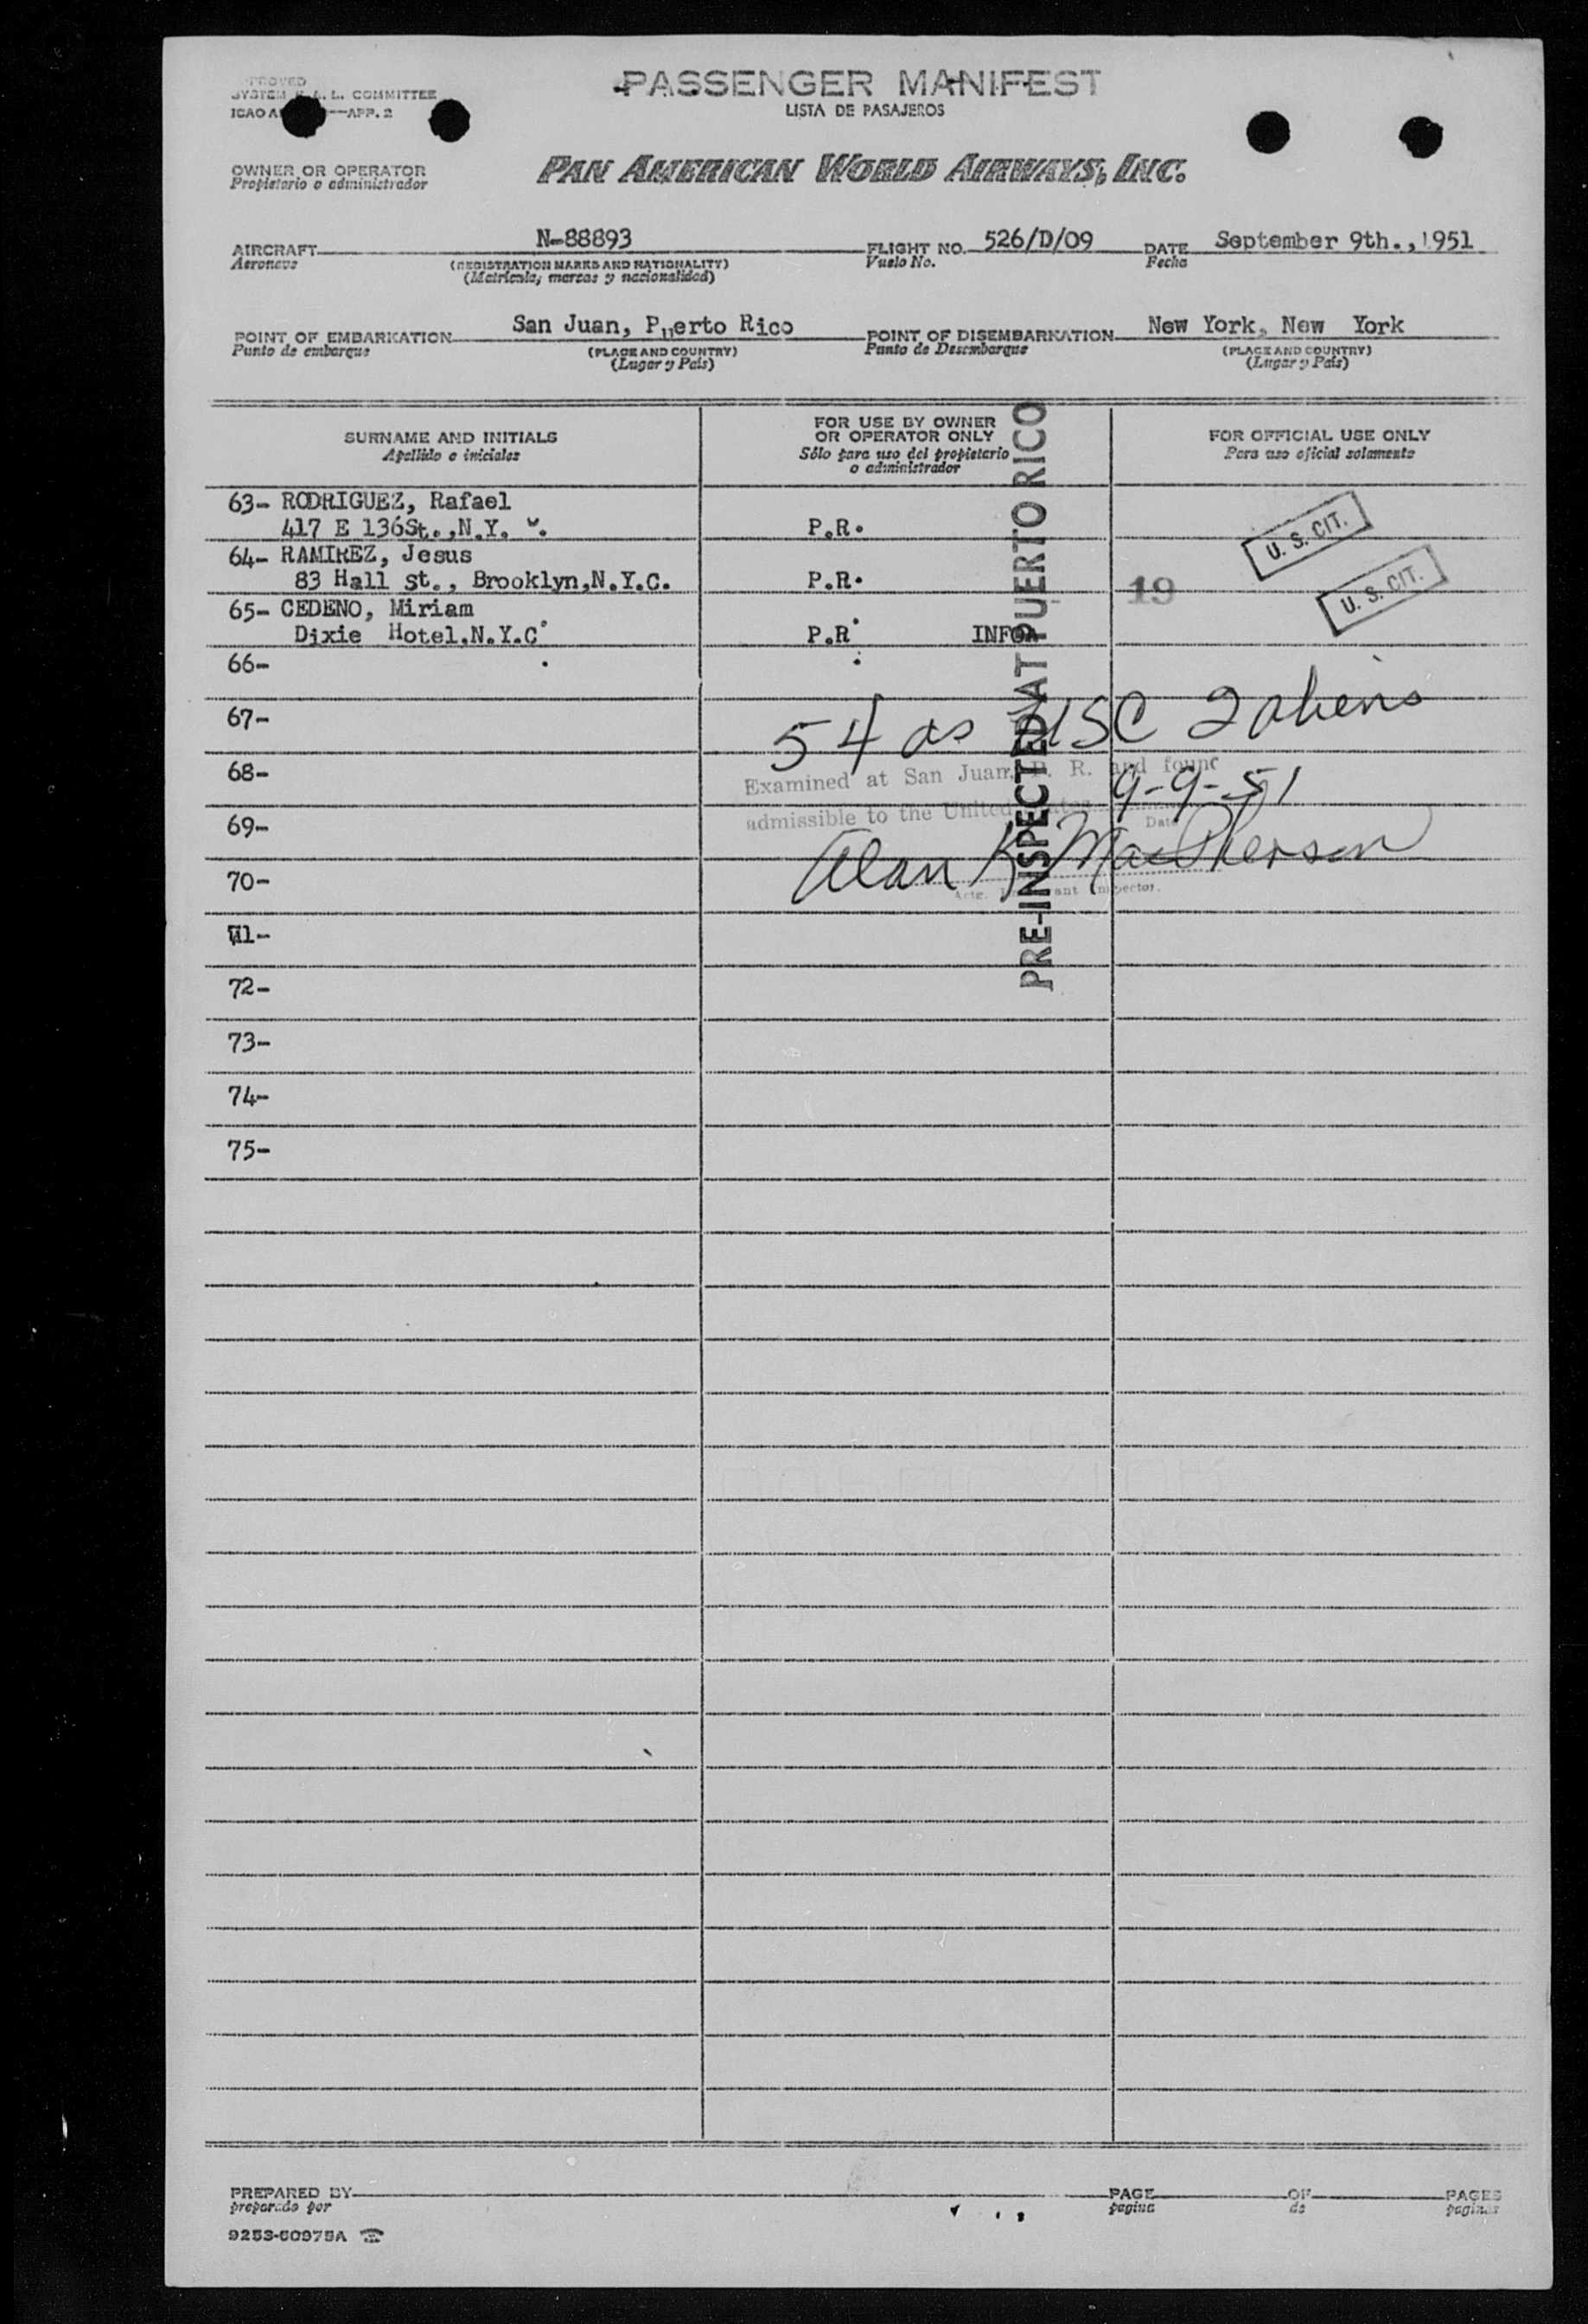 PASSENGER MANIFEST
LISTA DE PASAJEROS
L. COMMITTEE
ICAO —APP. 2
OWNER OR OPERATOR
Propietario o administrador
PAN AMERICAN WORLD AIRWAYS, INC.
AIRCRAFT N-88893 FLIGHT NO. 526/D/09 DATE September 9th.,1951
Aeronave (REGISTRATION MARKS AND NATIONALITY) Vuelo No. Fecha
(Matricula, marcas y nacionalidad)
POINT OF EMBARKATION San Juan, Puerto Rico POINT OF DISEMBARKATION New York, New York
Punto de embarque (PLACE AND COUNTRY) Punto de Desembarque (PLACE AND COUNTRY)
(Lugar y País) (Lugar y País)
SURNAME AND INITIALS
Apellido e iniciales
FOR USE BY OWNER
OR OPERATOR ONLY
Sólo para uso del propietario
o administrador
FOR OFFICIAL USE ONLY
Para uso oficial solamente
63- RODRIGUEZ, Rafael
417 E 136St.,N.Y. P.R. U. S. CIT.
64- RAMIREZ, Jesus
83 Hall st., Brooklyn,N.Y.C. P.R. 19 U. S. CIT.
65- CEDENO, Miriam
Dixie Hotel,N.Y.C. P.R. INFO
PRE-INSPECTED AT PUERTO RICO
66-
67- 54 as USC 2 aliens
68- Examined at San Juan, P. R. and found
9-9-51
69- admissible to the United States Date
Alan K MacPherson
70-
71-
72-
73-
74-
75-
PREPARED BY PAGE OF PAGES
preparado por pagina de paginas
9253-60975A